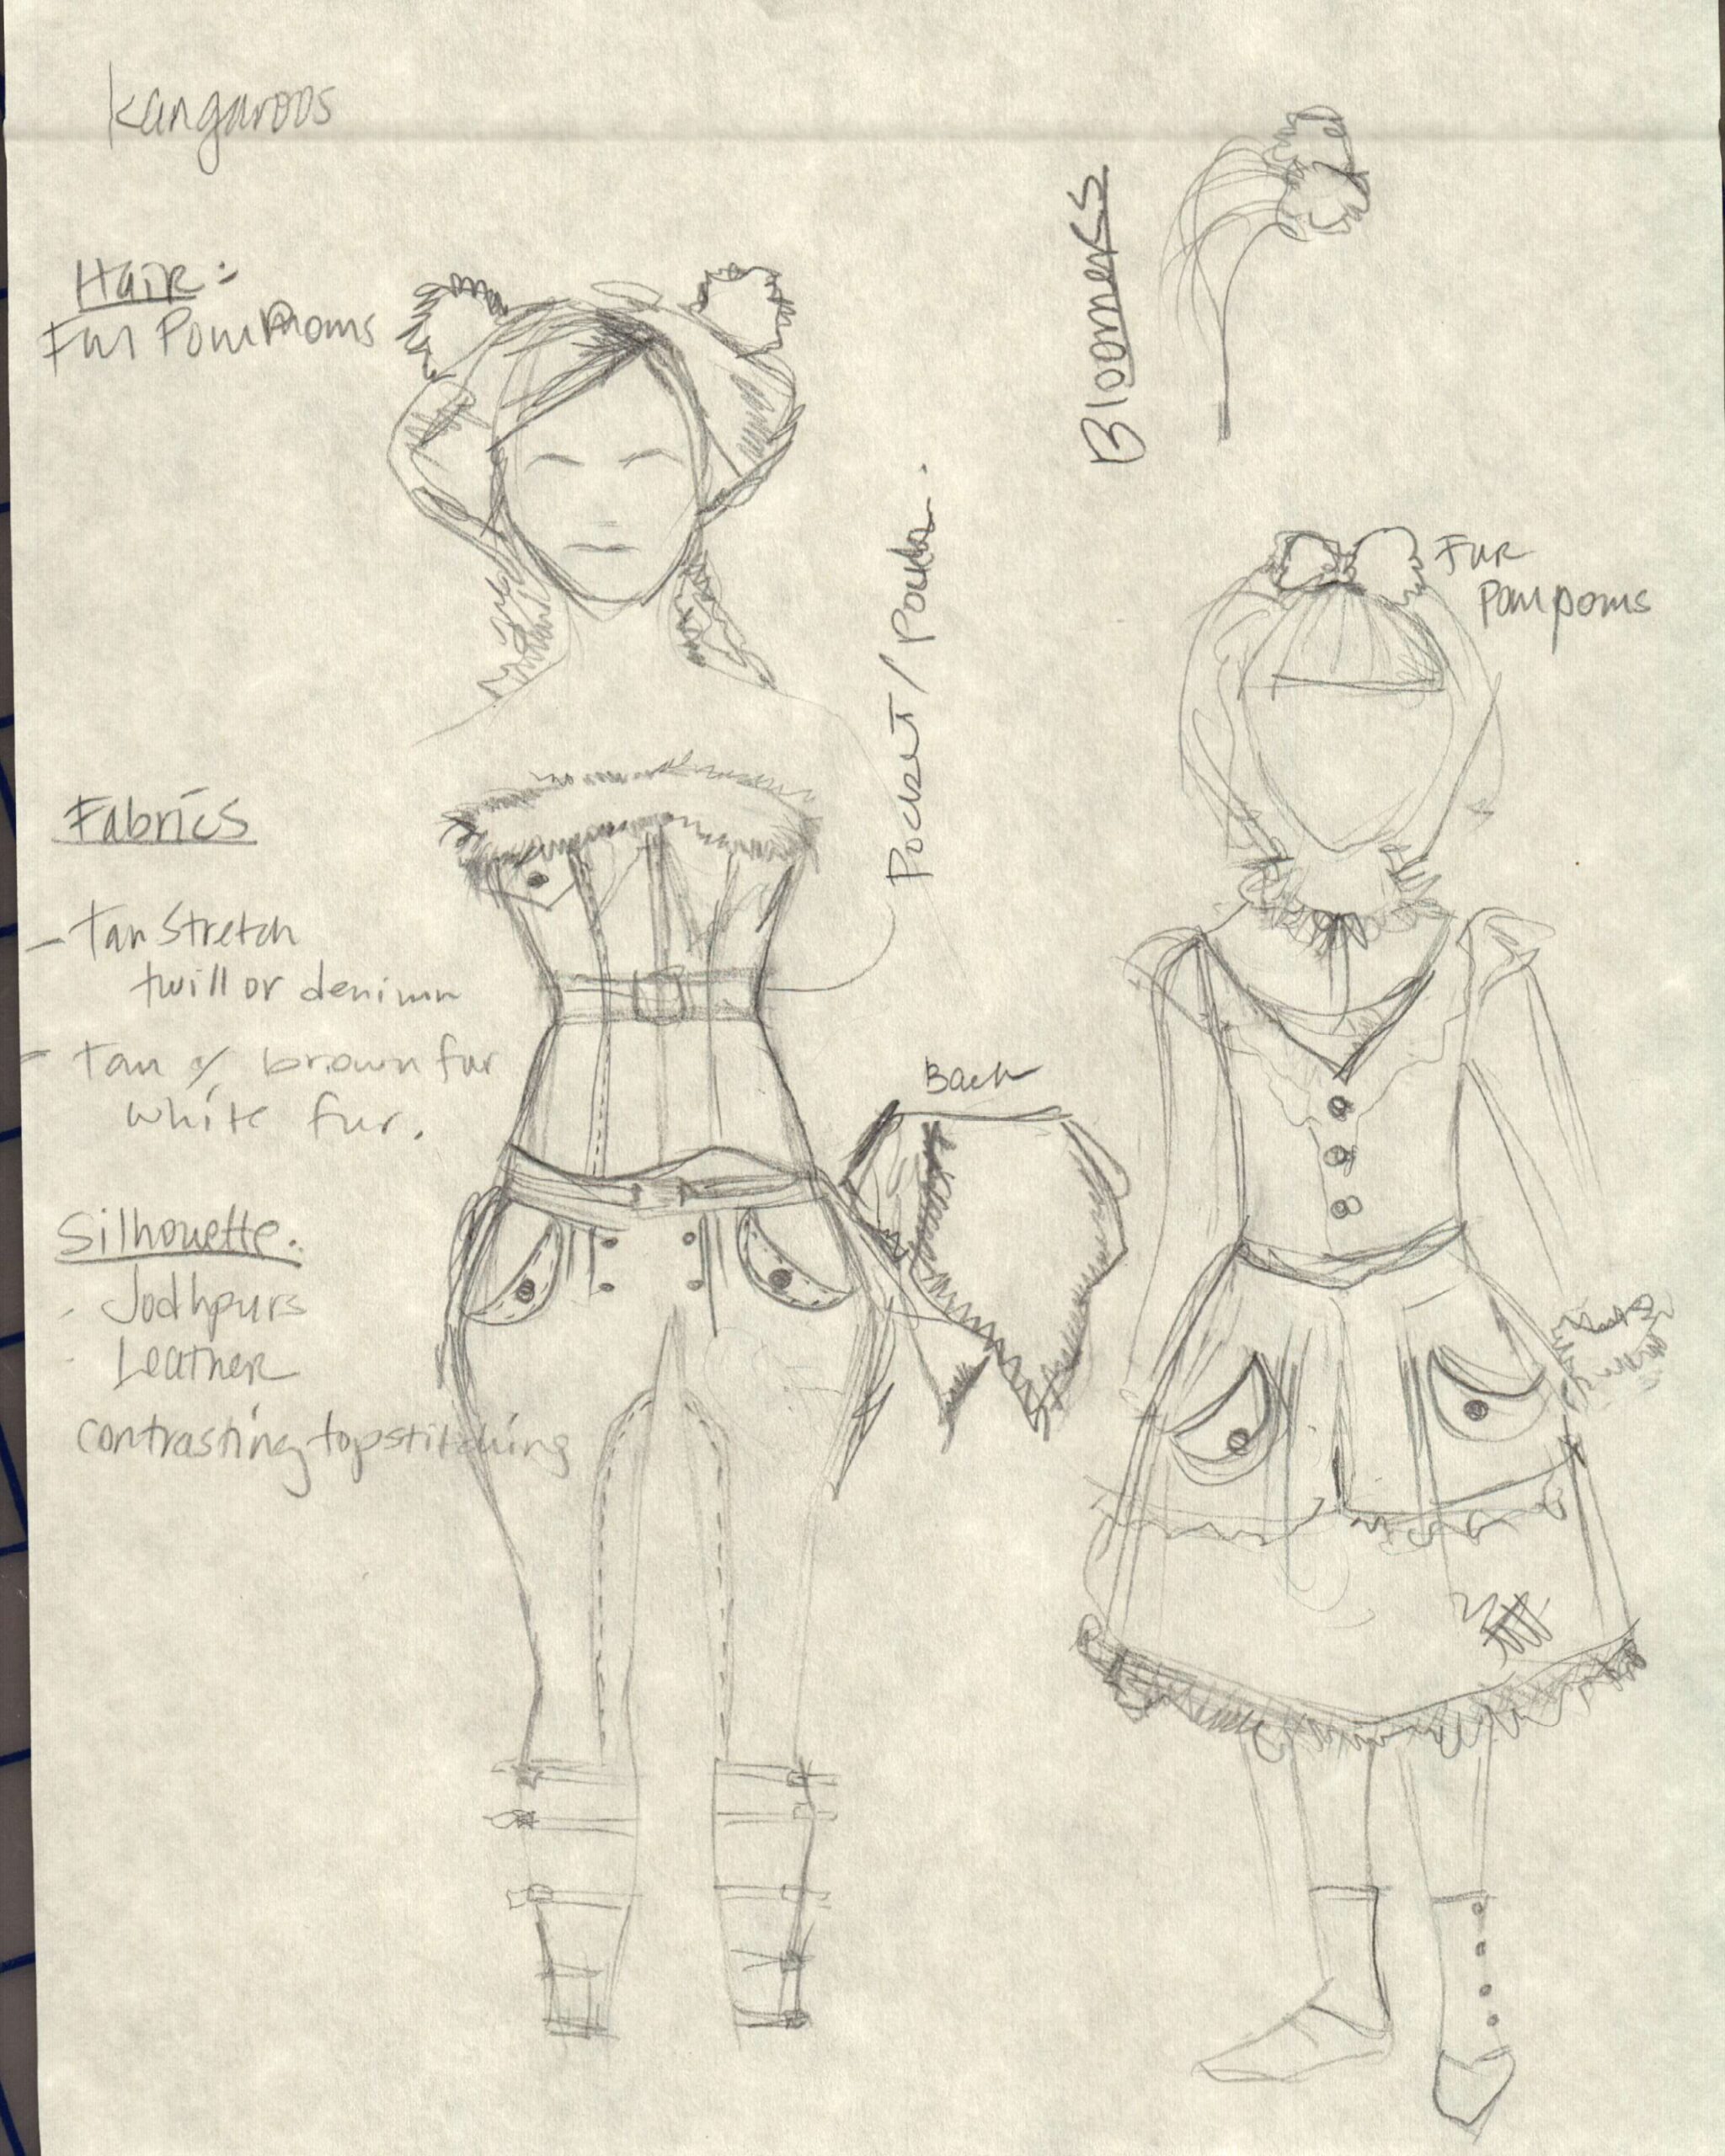 kangaroos
Hair:
Fur PomPoms
Bloomers
Fur
Pompoms
Pocket/Pouch.
Fabrics
- Tan Stretch
twill or denim
- Tan & brown fur
white fur.
Back
Silhouette.
- Jodhpurs
- Leather
contrasting topstitching